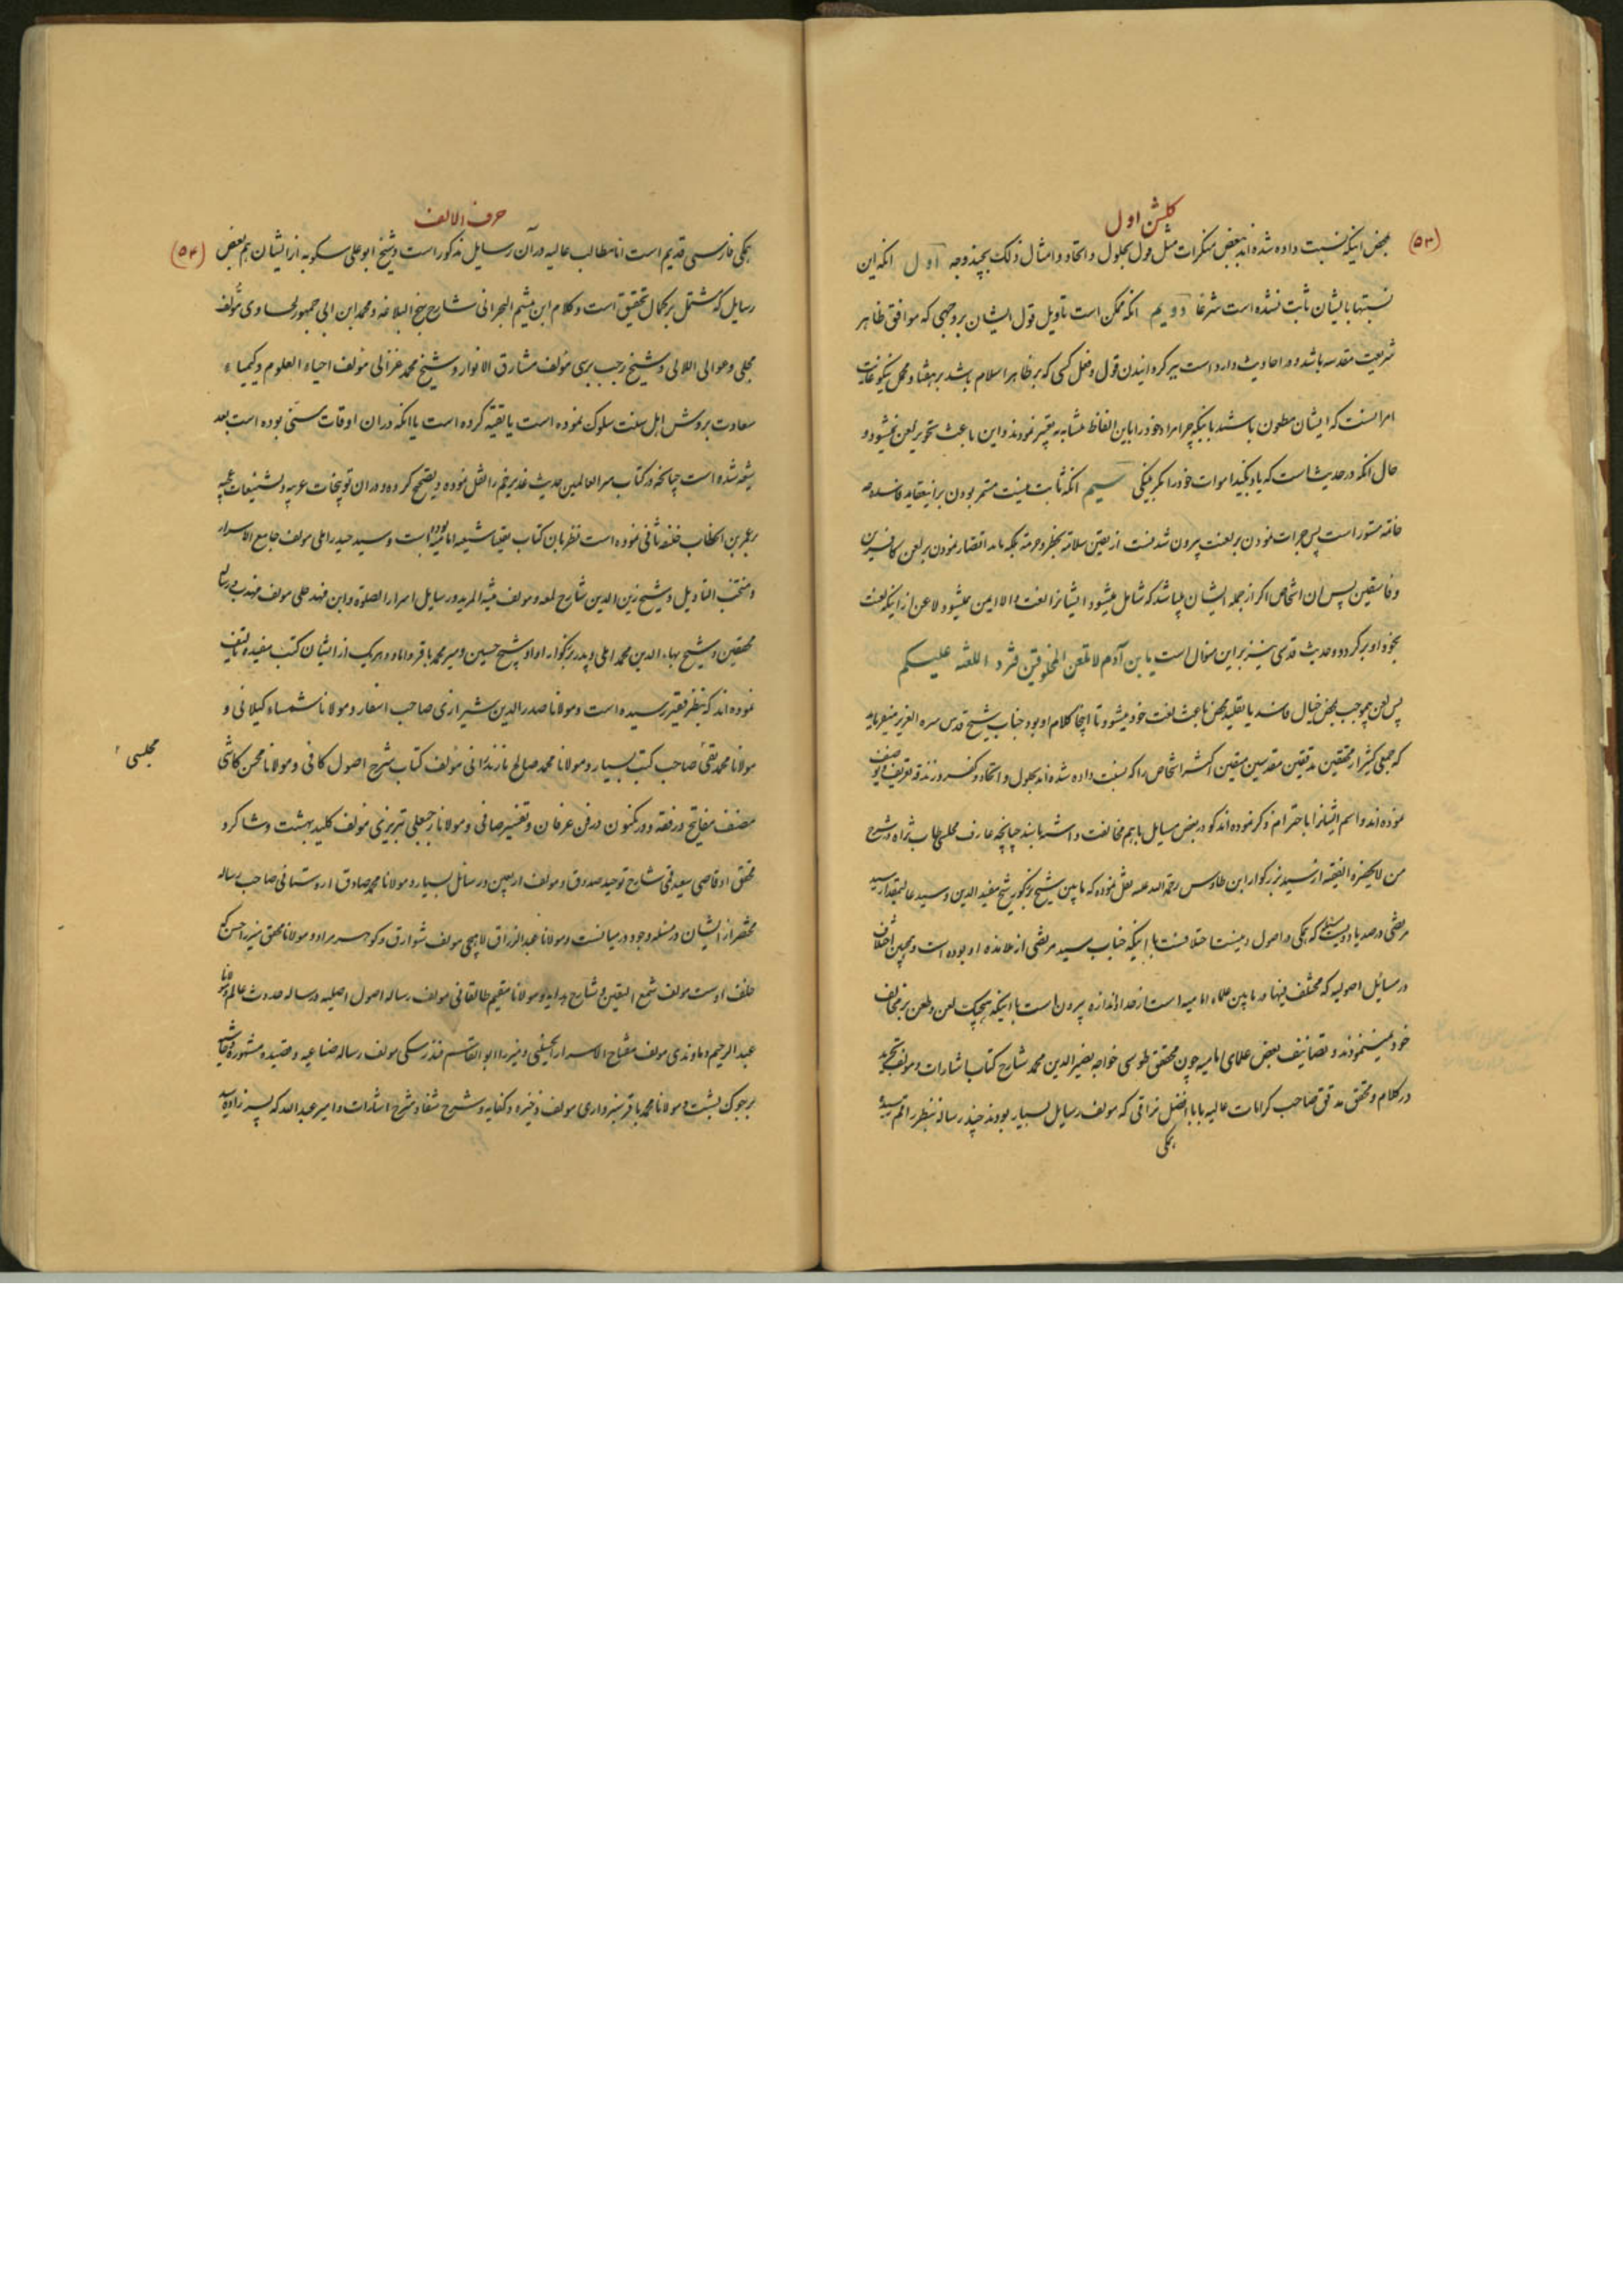 گلشن اول
(۵۳)
محض اینکه نسبت داده شده‌اند ببعض منکرات مثل قول بحلول و اتحاد و امثال ذلک بچند وجه اول آنکه این
نسبتها بایشان ثابت نشده است شرعا دویم آنکه ممکن است تاویل قول ایشان بر وجهی که موافق ظاهر
شریعت مقدسه باشد و در احادیث وارد است برگردانیدن قول و فعل کسی که بر ظاهر اسلام باشد بر هفتاد محمل نیکو غایت
امر اینست که ایشان مطعون باشند باینکه چرا مراد خود را باین الفاظ متشابه تعبیر نمودند و این باعث تجویز لعن نمیشود و
حال آنکه در حدیث است که یاد بکنید اموات خود را مگر بنیکی سیم آنکه ثابت نیست مستمر بودن بر این عقاید فاسده
خاتمه مستور است پس جرات نمودن بر لعنت بیرون شدنست از یقین سلامة بخطر و حرمة بلکه باید اقتصار نمودن بر لعن کافرین
و فاسقین پس آن اشخاص اگر از جمله ایشان باشد که شامل میشود ایشانرا لعنت و الا ایمن میشود لاعن از اینکه لعنت
بخود او برگردد و حدیث قدسی نیز بر این منوال است یا بن آدم لا تلعن المخلوقین فترد اللعنة علیکم
پس لعن بموجب محض خیال فاسد یا تقلید محض باعث لعنت خود میشود تا اینجا کلام او بود جناب شیخ قدس سره العزیز میفرماید
که جمعی کثیر از محققین مدققین مقدسین متقین اکثر اشخاص را که نسبت داده شده‌اند بحلول و اتحاد و کفر و زندقه تعریف و توصیف
نموده‌اند و اسم ایشانرا باحترام ذکر نموده‌اند گو در بعض مسایل با هم مخالفت داشته باشند چنانچه عارف مجلسی طاب ثراه در شرح
من لا یحضره الفقیه از سید بزرگوار ابن طاوس رحمة الله علیه نقل نموده که ما بین شیخ بزرگوار شیخ مفید الدین و سید عالیمقدار سید
مرتضی در صد یا دویست مسئله که همگی در اصول دینست اختلافست با اینکه جناب سید مرتضی از تلامذه او بوده است و همچنین اختلاف
در مسائل اصولیه که مختلف فیها در ما بین علماء امامیه است از حد و اندازه بیرون است با اینکه هیچیک لعن و طعن بر مخالف
خود نمینمودند و تصانیف بعض علمای امامیه چون محقق طوسی خواجه نصیر الدین محمد شارح کتاب اشارات و مولف تجرید
در کلام و محقق مدقق صاحب کرامات عالیه بابا افضل نراقی که مولف رسایل بسیار بودند چند رساله بنظر راقم رسید
همگی
حرف الالف
(۵۴)
همگی فارسی قدیم است اما مطالب عالیه در آن رسایل مذکور است و شیخ ابو علی مسکویه از ایشان هم بعض
رسایل که مشتمل بر کمال تحقیق است و کلام ابن میثم البحرانی شارح نهج البلاغه و محمد ابن ابی جمهور لحساوی مولف
مجلی و عوالی اللالی و شیخ رجب برسی مولف مشارق الانوار و شیخ محمد غزالی مولف احیاء العلوم و کیمیاء
سعادت بر روش اهل سنت سلوک نموده است یا تقیه کرده است یا آنکه در آن اوقات سنی بوده است بعد
شیعه شده است چنانچه در کتاب سر العالمین حدیث غدیر خم را نقل نموده و تصحیح کرده و در آن توبیخات عربیه و تشنیعات عجیبه
بر عمر بن الخطاب خلیفه ثانی نموده است نظر بان کتاب یقینا شیعه امامیه بوده است و سید حیدر املی مولف جامع الاسرار
و منتخب التاویل و شیخ زین الدین شارح لمعه و مولف منیة المرید و رسایل اسرار الصلوة و ابن فهد حلی مولف مهذب و رسایل
محققین و شیخ بهاء الدین محمد املی و پدر بزرگوار او شیخ حسین و میر محمد باقر داماد و هر یک از ایشان کتب مفیده تالیف
نموده‌اند که بنظر فقیر رسیده است و مولانا صدر الدین شیرازی صاحب اسفار و مولانا شمساء گیلانی و
مولانا محمد تقی صاحب کتب بسیار و مولانا محمد صالح مازندرانی مولف کتاب شرح اصول کافی و مولانا محسن کاشی
مجلسی
مصنف مفاتیح در فقه و در مکنون در فن عرفان و تفسیر صافی و مولانا رجبعلی تبریزی مولف کلید بهشت و شاگرد
محقق او قاضی سعید قمی شارح توحید صدوق و مولف اربعین و رسائل بسیار و مولانا محمد صادق اردستانی صاحب رساله
مختصر از ایشان در مسئله وجود در میانست و مولانا عبد الرزاق لاهیجی مولف شوارق و گوهر مراد و مولانا محقق میرزا حسن که
خلف اوست مولف شمع الیقین و شارح هدایه و مولانا مقیم طالقانی مولف رساله اصول اصلیه و رساله حدوث عالم و مولانا
عبد الرحیم دماوندی مولف مفتاح الاسرار الحسینی و میرزا ابو القاسم فندرسکی مولف رساله صناعیه و قصیده مشهوره و حاشیه
بر جوک بشست و مولانا محمد باقر سبزواری مولف ذخیره و کفایه و شرح شفا و شرح اشارات و امیر عبد الله که پسر زاده سید